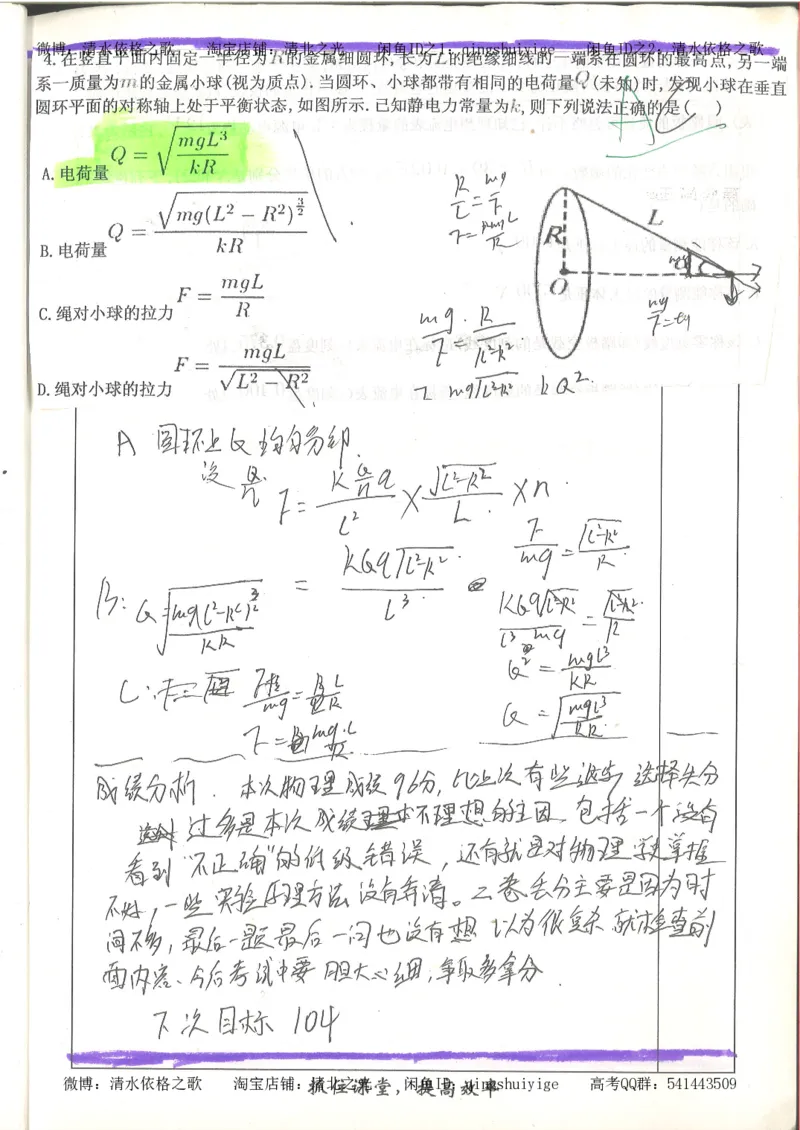 微博：清水依格之歌 淘宝店铺：清北之光 闲鱼ID之1：qingshuiyige 闲鱼ID之2：清水依格之歌
4.在竖直平面内固定一半径为R的金属细圆环,长为L的绝缘细线的一端系在圆环的最高点,另一端
系一质量为m的金属小球(视为质点).当圆环、小球都带有相同的电荷量Q(未知)时,发现小球在垂直
圆环平面的对称轴上处于平衡状态,如图所示.已知静电力常量为k,则下列说法正确的是( )
A.电荷量 Q = √(mgL³/kR)
B.电荷量 Q = √(mg(L² − R²)^(3/2))/kR
C.绳对小球的拉力 F = mgL/R
D.绳对小球的拉力 F = mgL/√(L² − R²)
R
L
O
R/L = mg/F
mg/F = tg
kQ²
A 圆环上Q均匀分印
设 Q/n
F = (k Q/n q)/L² × √(L²-R²)/L × n
= kQq√(L²-R²)/L³
F/mg = √(L²-R²)/R
kQq√(L²-R²)/(L³mg) = √(L²-R²)/R
Q² = mgL³/kR
Q = √(mgL³/kR)
B: Q = √(mg(L²-R²)^(3/2)/kR)
成绩分析. 本次物理成绩96分,比上次有些退步 选择失分
过多是本次成绩不理想的主因. 包括一个没有
看到"不正确"的低级错误，还有就是对物理学掌握
不好,一些实验原理方法没有弄清。二卷丢分主要是因为时
间不多,最后一题最后一问也没有想 以为很复杂 就检查前
面内容、今后考试中要胆大心细,争取多拿分
下次目标 104
抓住课堂，提高效率
微博：清水依格之歌 淘宝店铺：清北之光 闲鱼ID：qingshuiyige 高考QQ群：541443509